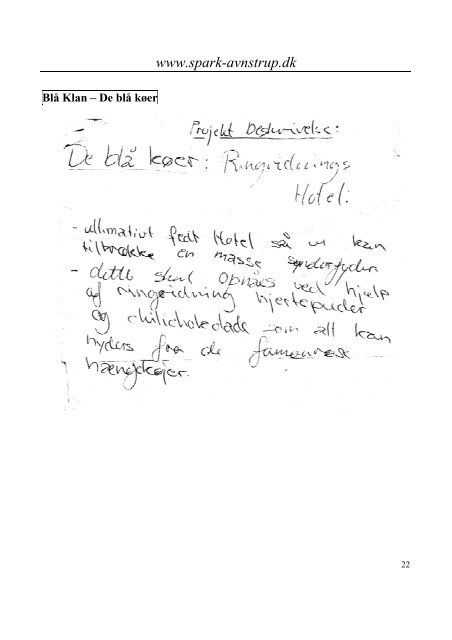 www.spark-avnstrup.dk
Blå Klan – De blå køer
Projekt Beskrivelse:
De blå køer: Ringridnings
Hotel:
- ultimativt fedt Hotel så vi kan
tiltrække en masse sønderjyder
- dette skal opnåes ved hjælp
af ringridning hjertepuder
og chilichokolade som alt kan
nydes fra de
hængekøjer.
22